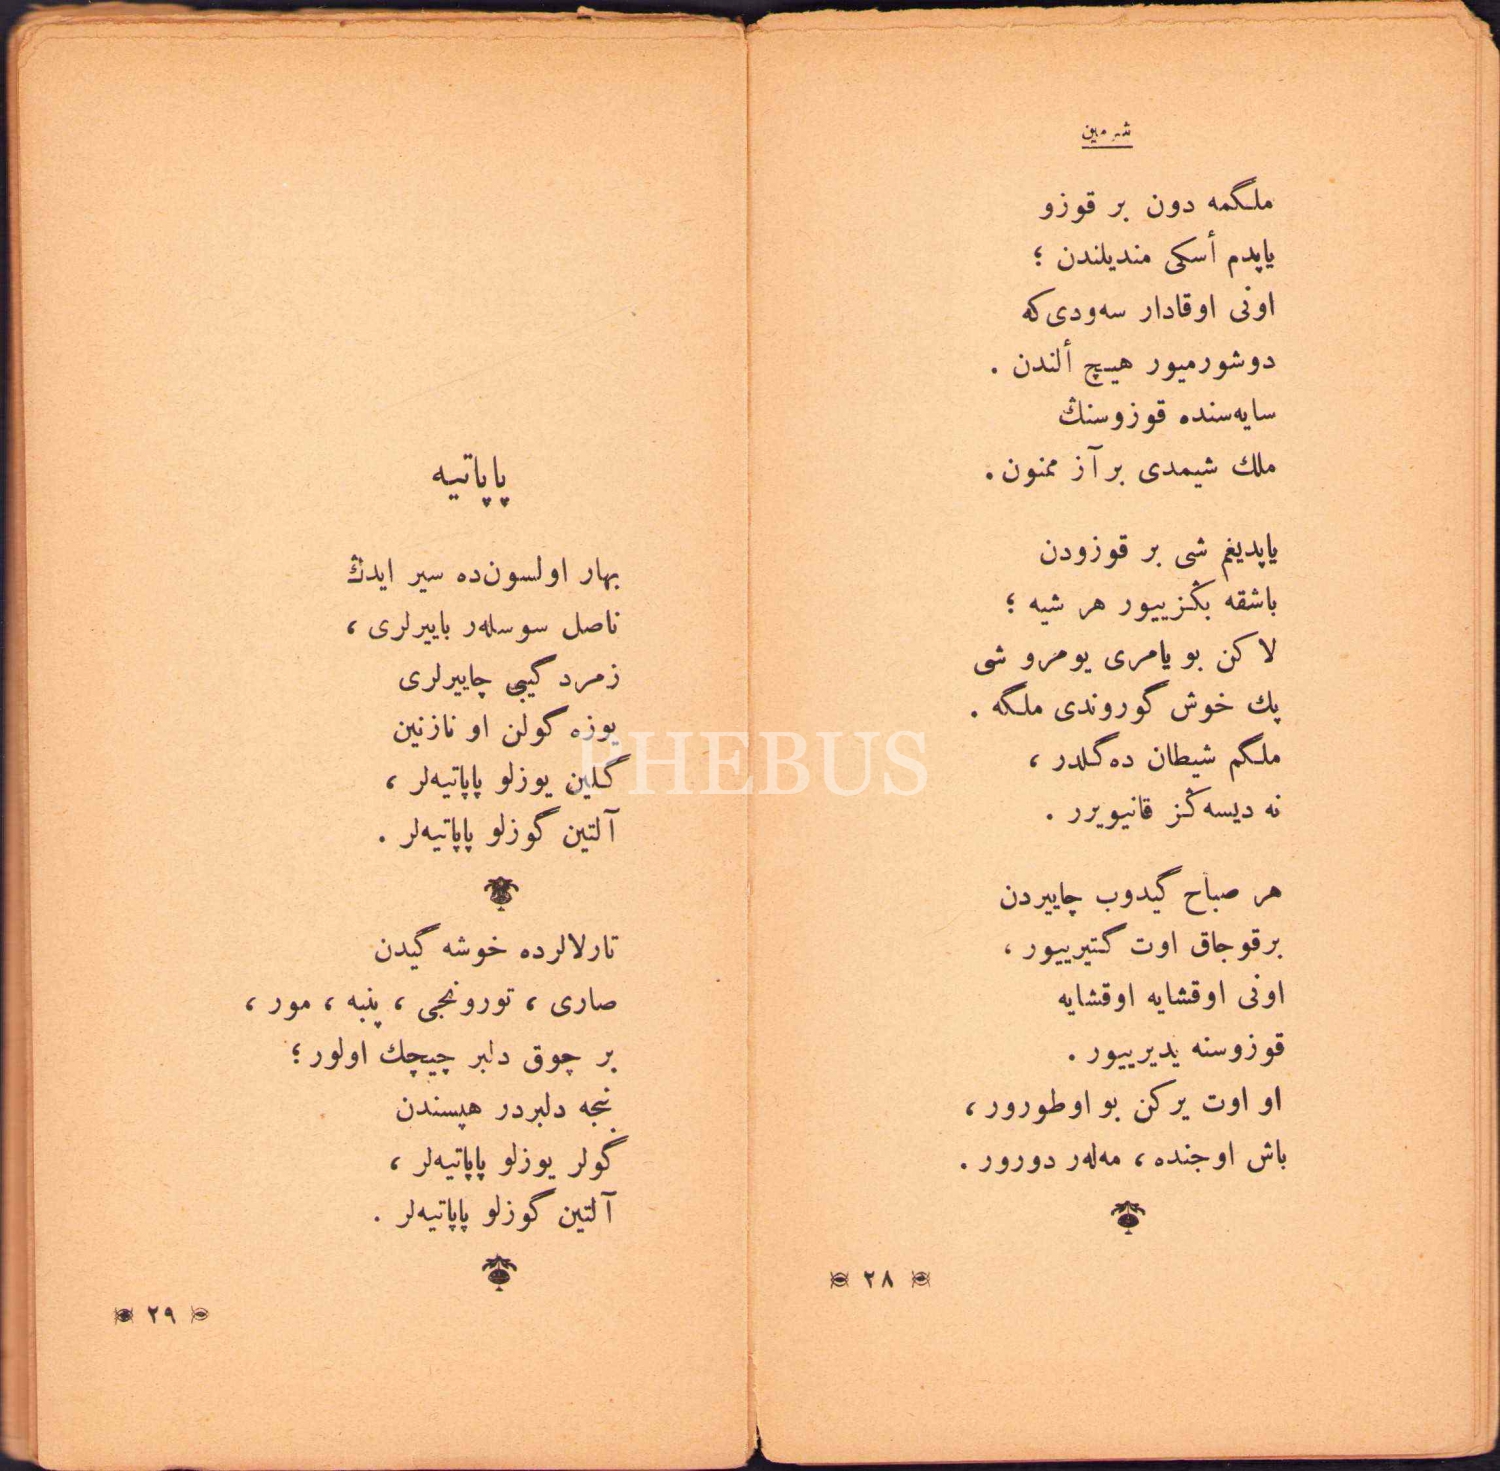 شرمین
ملگمه دون بر قوزو
یاپدم أسکی مندیلندن ؛
اونی اوقادار سه‌ودی‌که
دوشورمیور هیچ ألندن .
سایه‌سنده قوزوسنڭ
ملك شیمدی بر آز ممنون .
یاپدیغم شی بر قوزودن
باشقه بڭزییور هر شیه ؛
لاکن بو یامری یومرو شی
پك خوش گوروندی ملگه .
ملگم شیطان ده‌گلدر ،
نه دیسه‌ڭز قانیویرر .
هر صباح گیدوب چاییردن
برقوجاق اوت گتیرییور ،
اونی اوقشایه اوقشایه
قوزوسنه یدیرییور .
او اوت یرکن بو اوطورور ،
باش اوجنده ، مه‌له‌ر دورور .
٢٨
پاپاتیه
بهار اولسون‌ده سیر ایدڭ
ناصل سوسله‌ر باییرلری ،
زمرد گیبی چاییرلری
یوزه گولن او نازنین
گلین یوزلو پاپاتیه‌لر ،
آلتین گوزلو پاپاتیه‌لر .
تارلالرده خوشه گیدن
صاری ، تورونجی ، پنبه ، مور ،
بر چوق دلبر چیچك اولور ؛
بنجه دلبردر هپسندن
گولر یوزلو پاپاتیه‌لر ،
آلتین گوزلو پاپاتیه‌لر .
٢٩
PHEBUS